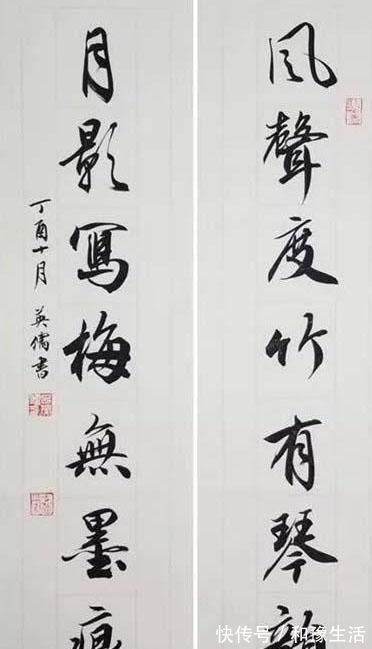 风聲度竹有琴韻
月影寫梅無墨痕
丁酉十月 英儒書
快传号/和豫生活